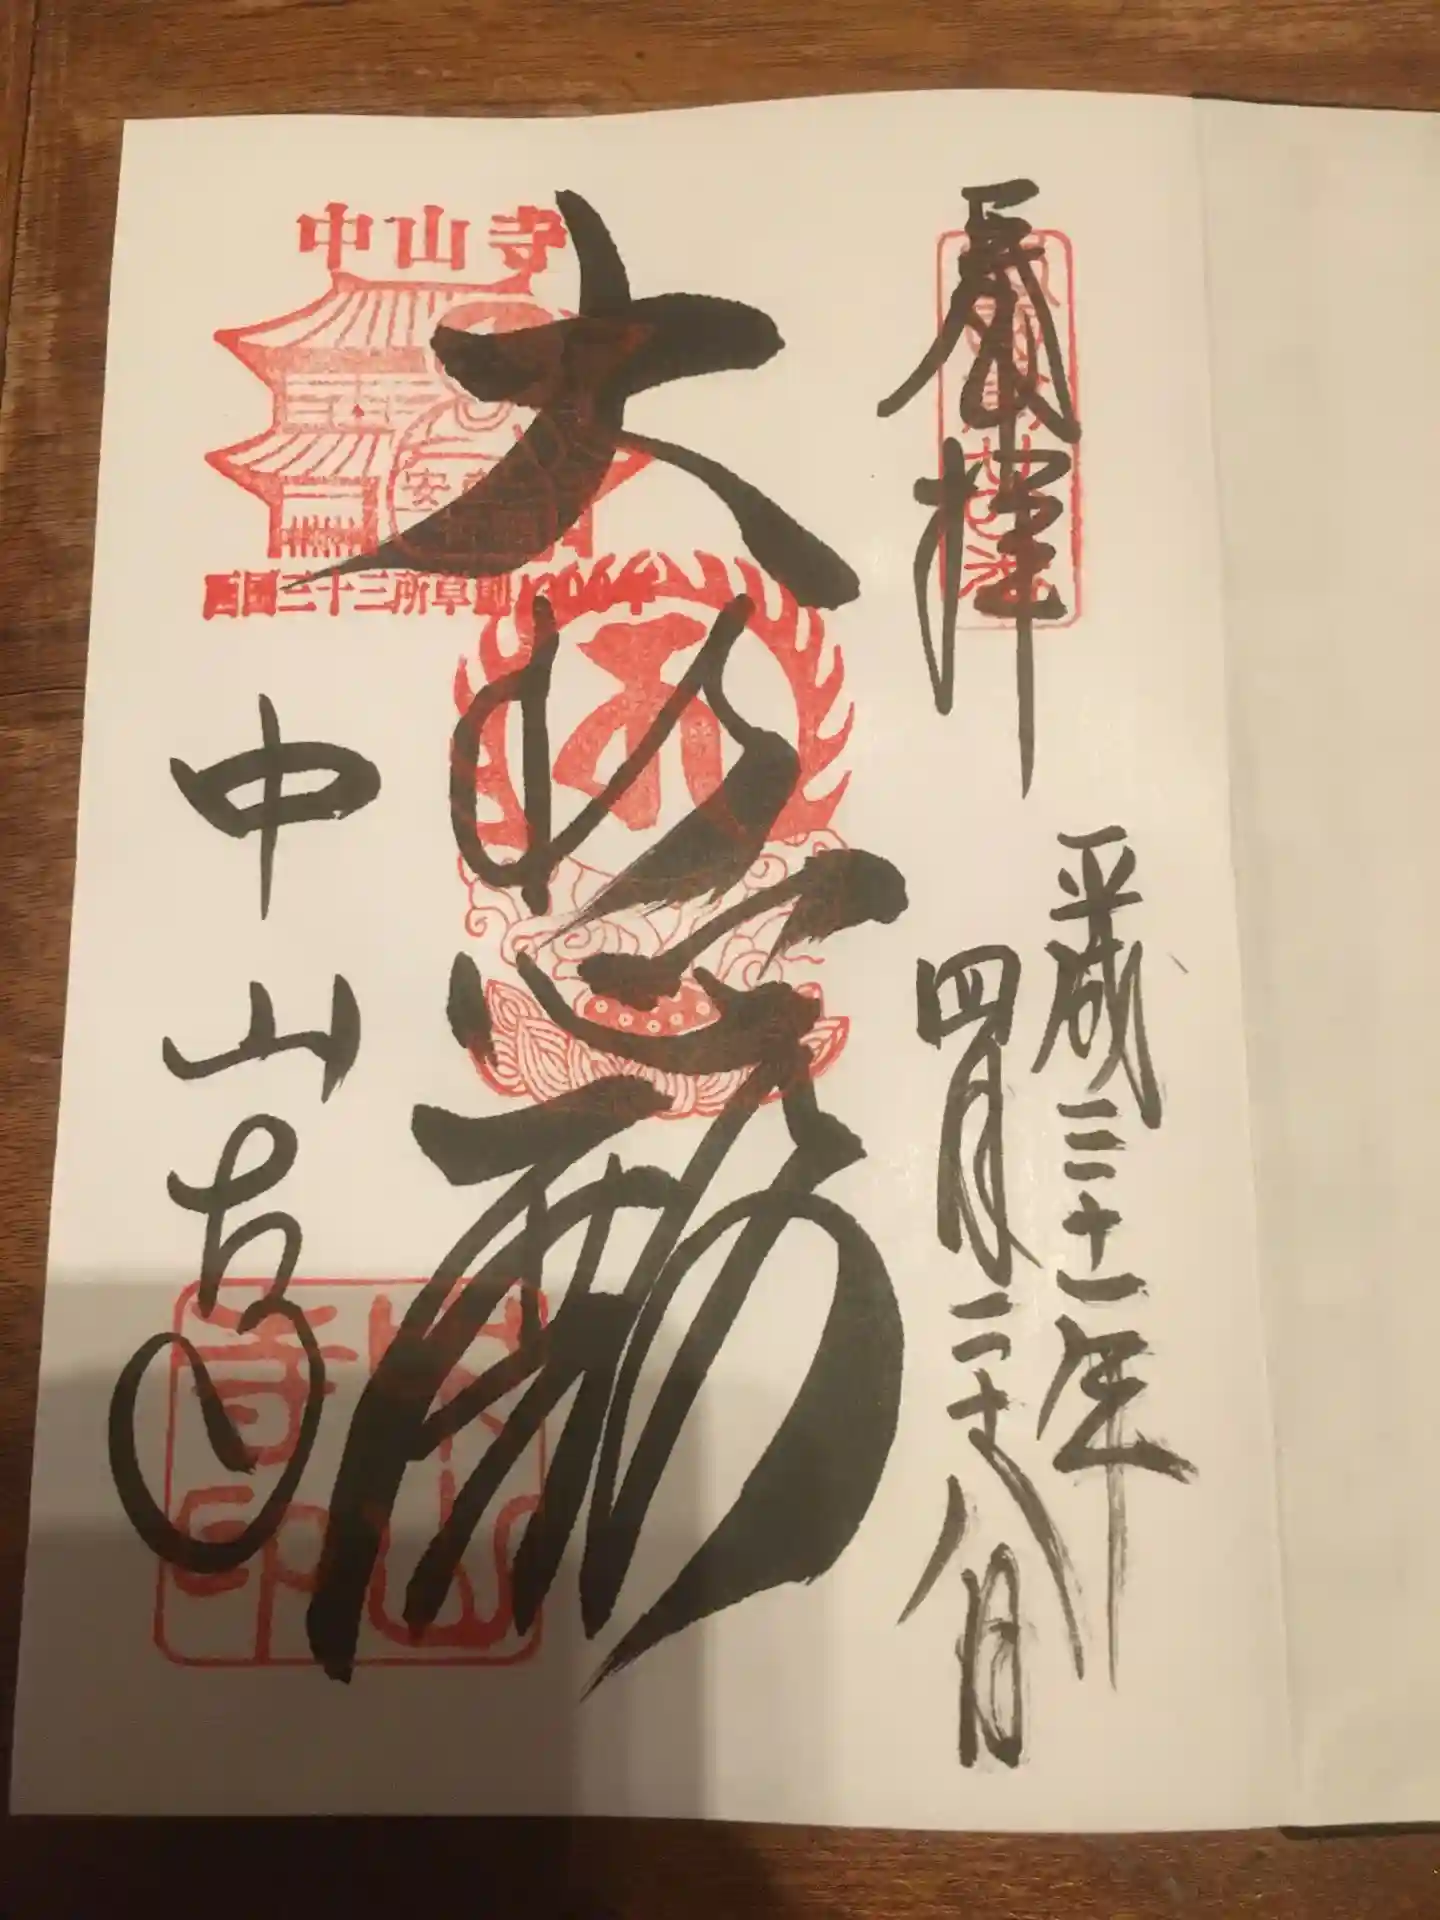 奉拝
平成三十一年
四月二十八日
大悲殿
中山寺
中山寺
西国三十三所草創1300年
安
中山寺印